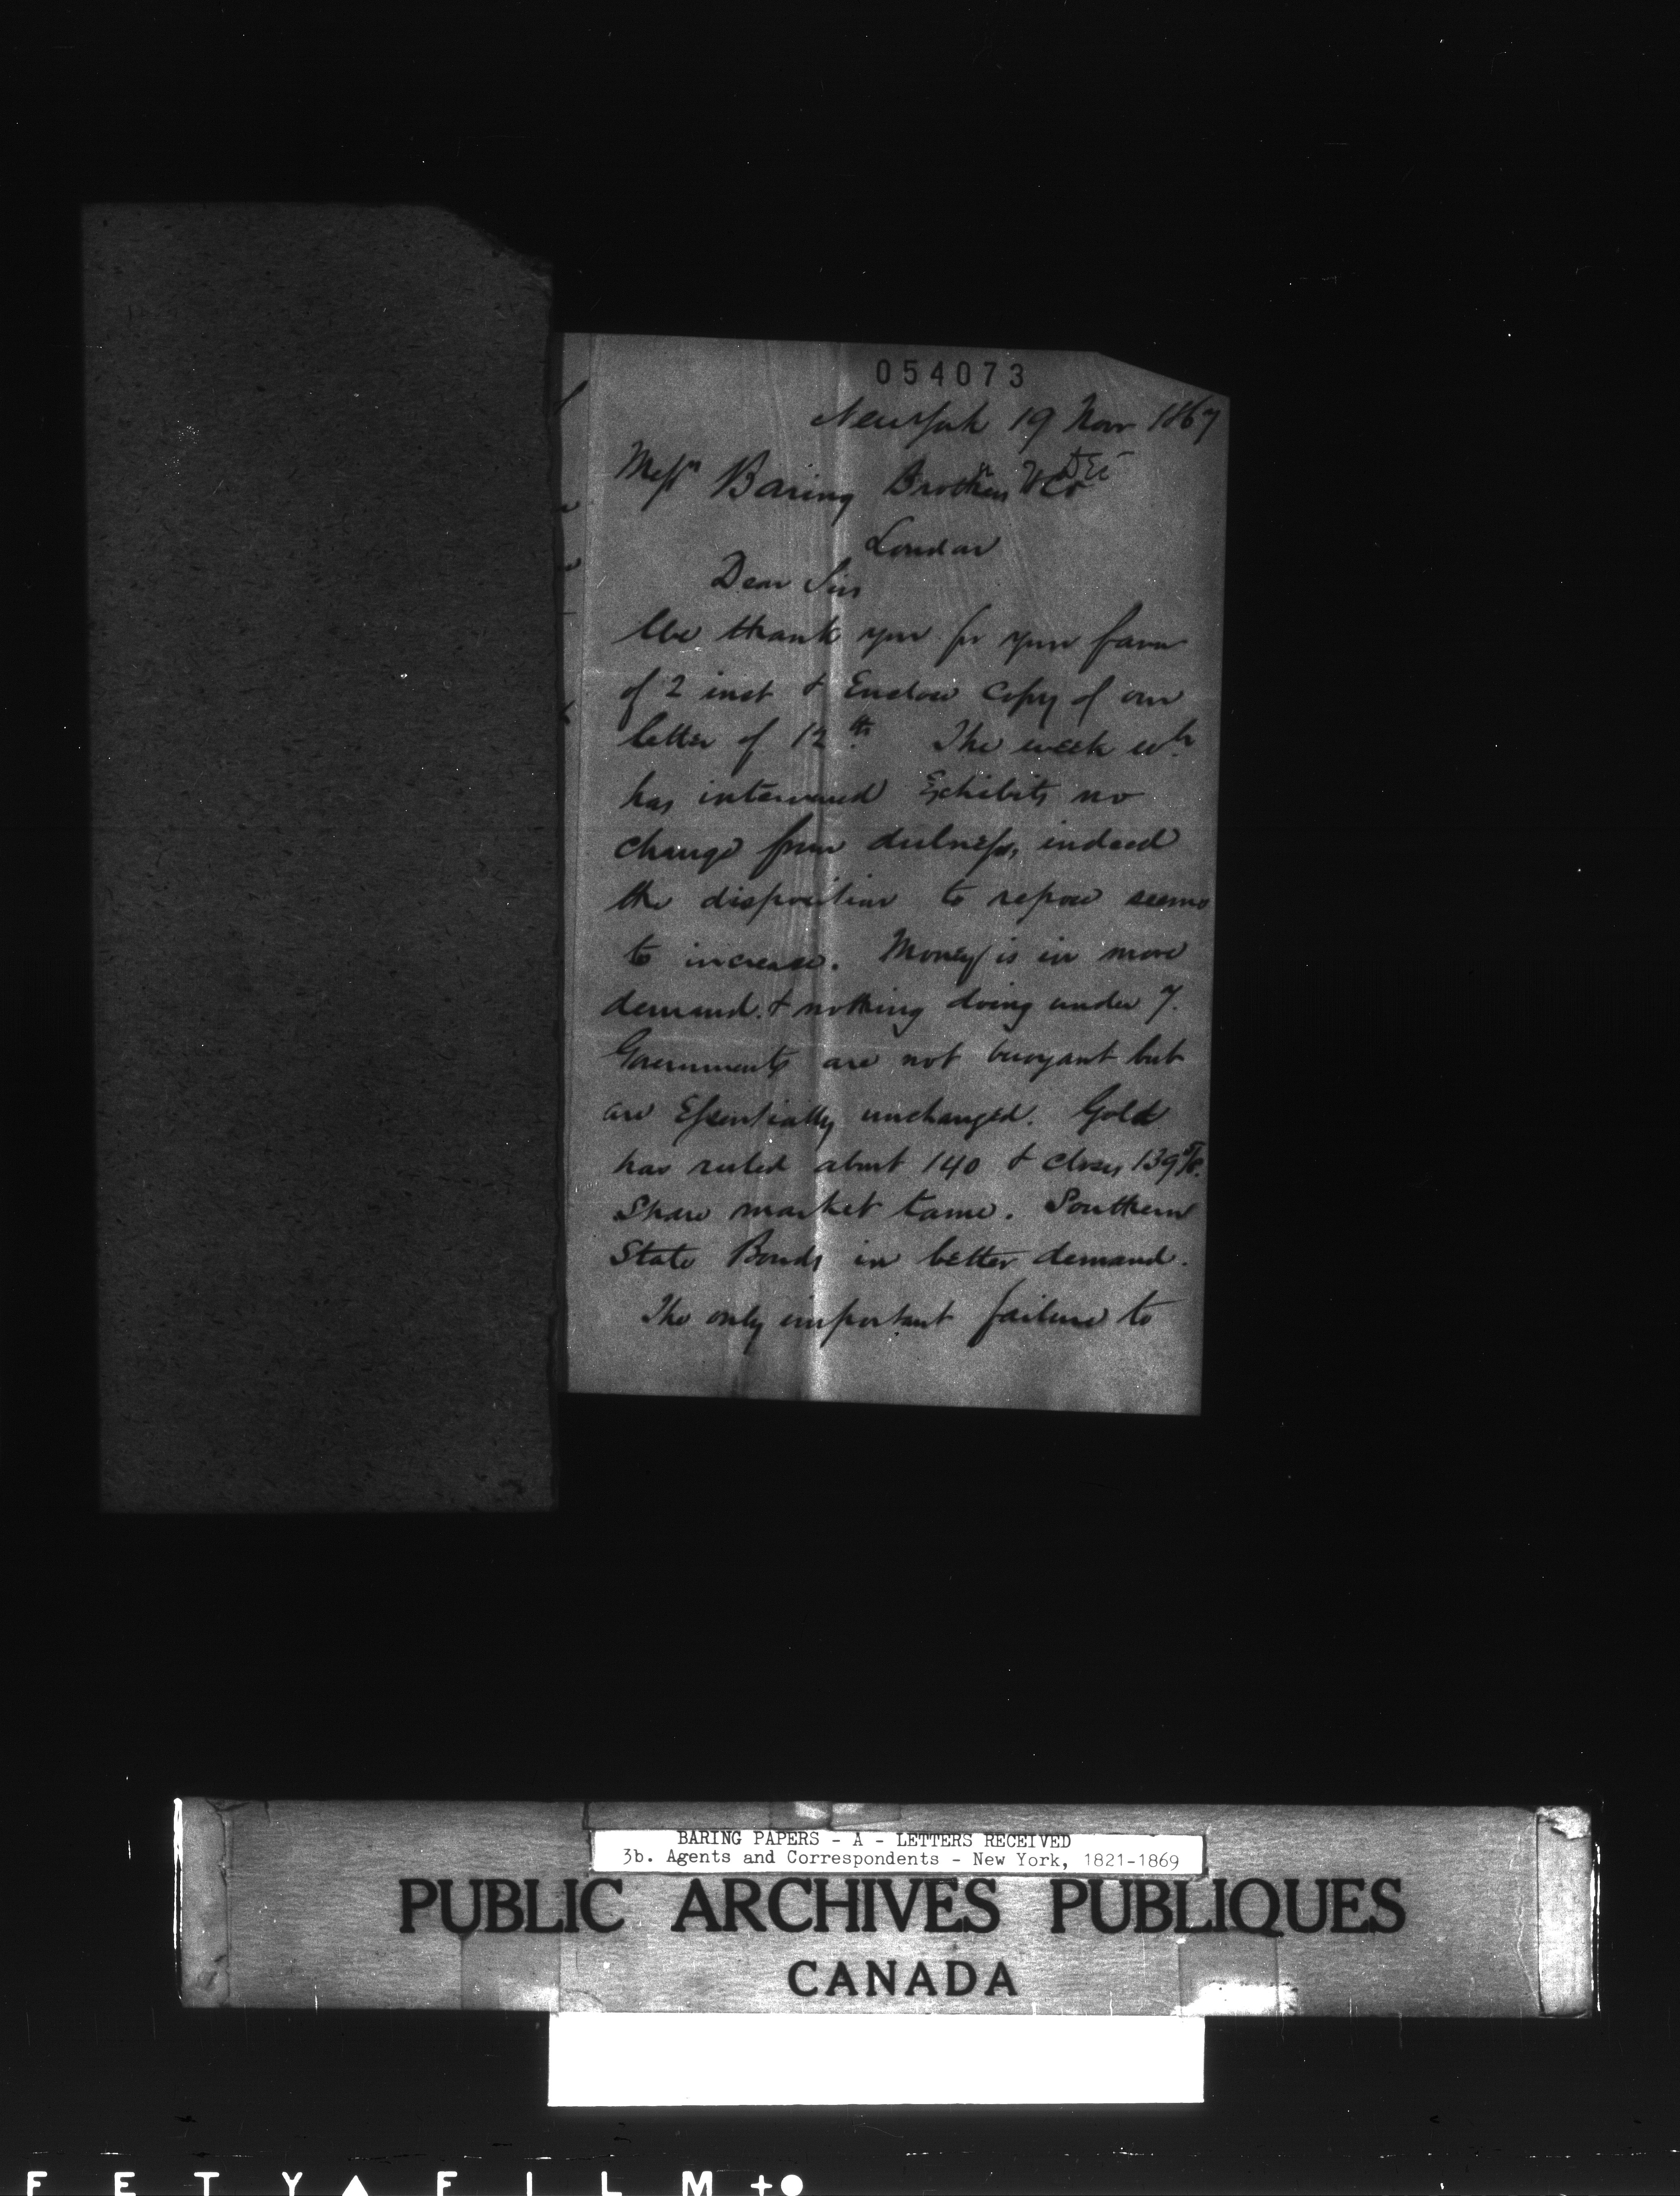 054073
New York 19 Nov 1867
Messrs Baring Brothers & Co
London
Dear Sirs
We thank you for your favor
of 2 inst & Enclose Copy of our
letter of 12th. The week wh
has intervened Exhibits no
change from dulness, indeed
the disposition to repose seems
to increase. Money is in more
demand. & nothing doing under 7.
Governments are not buoyant but
are Essentially unchanged. Gold
has ruled about 140 & closes 139 5/8.
Share market tame. Southern
State Bonds in better demand.
The only important failure to
BARING PAPERS - A - LETTERS RECEIVED
3b. Agents and Correspondents - New York, 1821-1869
PUBLIC ARCHIVES PUBLIQUES
CANADA
F E T Y ▲ F I L M +●